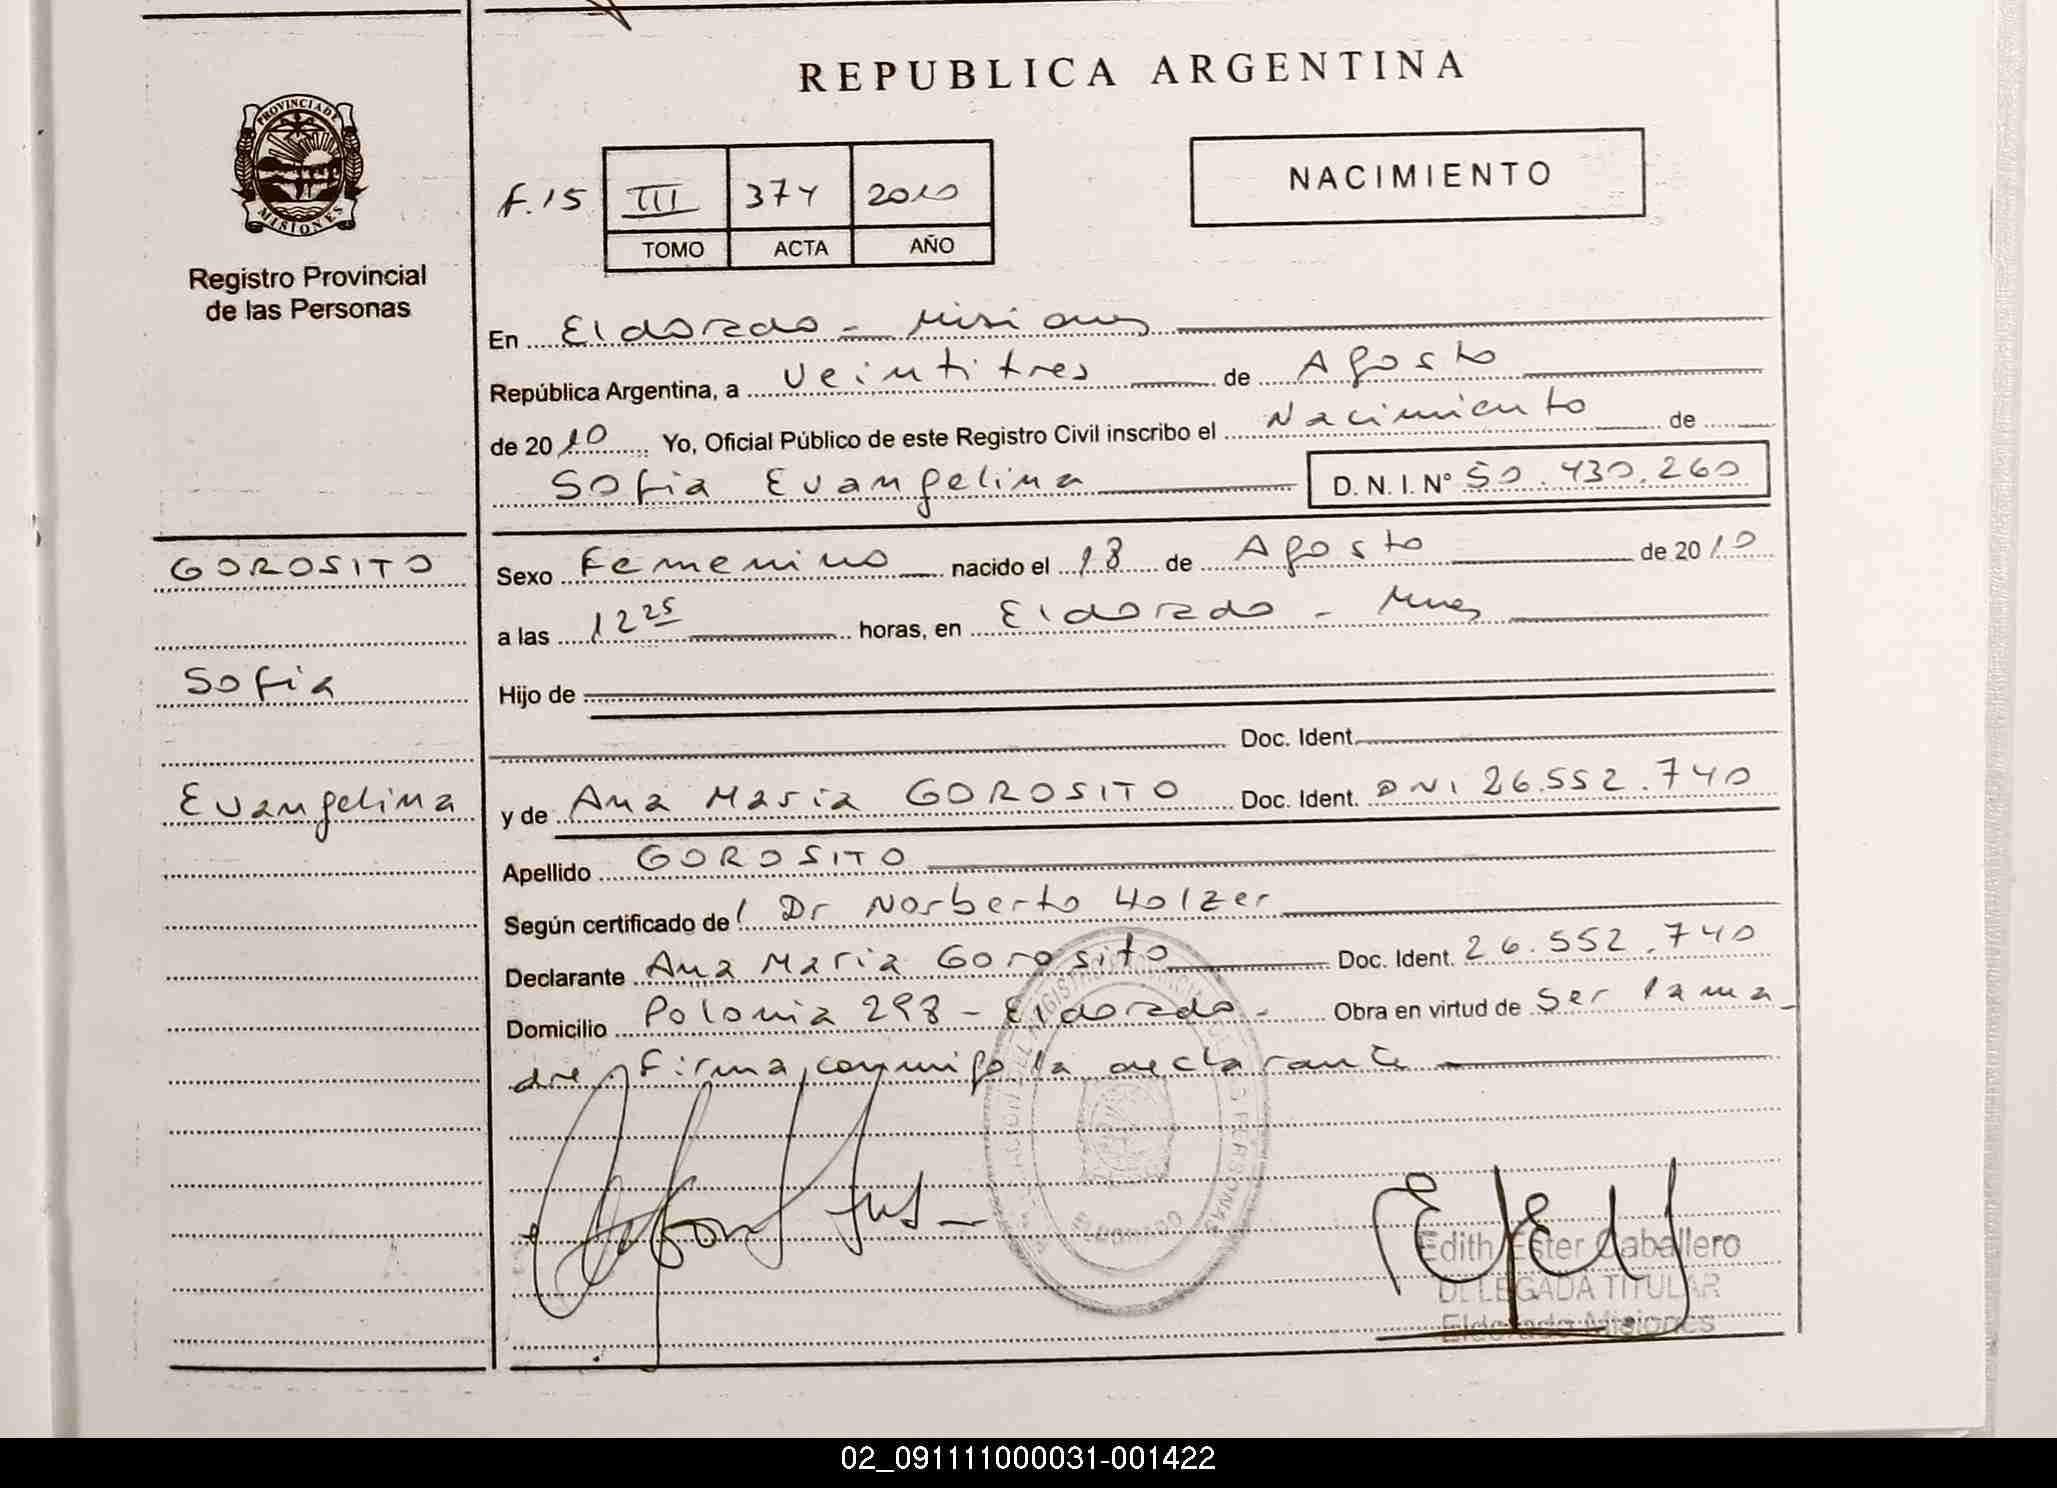 REPUBLICA ARGENTINA
PROVINCIA DE
MISIONES
Registro Provincial
de las Personas
F. 15 III 374 2010
TOMO ACTA AÑO
NACIMIENTO
En Eldorado - Misiones
República Argentina, a Veintitres de Agosto
de 2010 Yo, Oficial Público de este Registro Civil inscribo el Nacimiento de
Sofia Evangelina D. N. I. Nº 50.430.260
GOROSITO
Sofia
Evangelina
Sexo Femenino nacido el 18 de Agosto de 2010
a las 12 25 horas, en Eldorado - Mnes
Hijo de
Doc. Ident.
y de Ana Maria GOROSITO Doc. Ident. DNI 26.552.740
Apellido GOROSITO
Según certificado de Dr Norberto Holzer
Declarante Ana Maria Gorosito Doc. Ident. 26.552.740
Domicilio Polonia 298 - Eldorado - Obra en virtud de ser la ma
dre, Firma conmigo la declarante
ELDORADO
Edith Ester Caballero
DELEGADA TITULAR
Eldorado Misiones
02_091111000031-001422